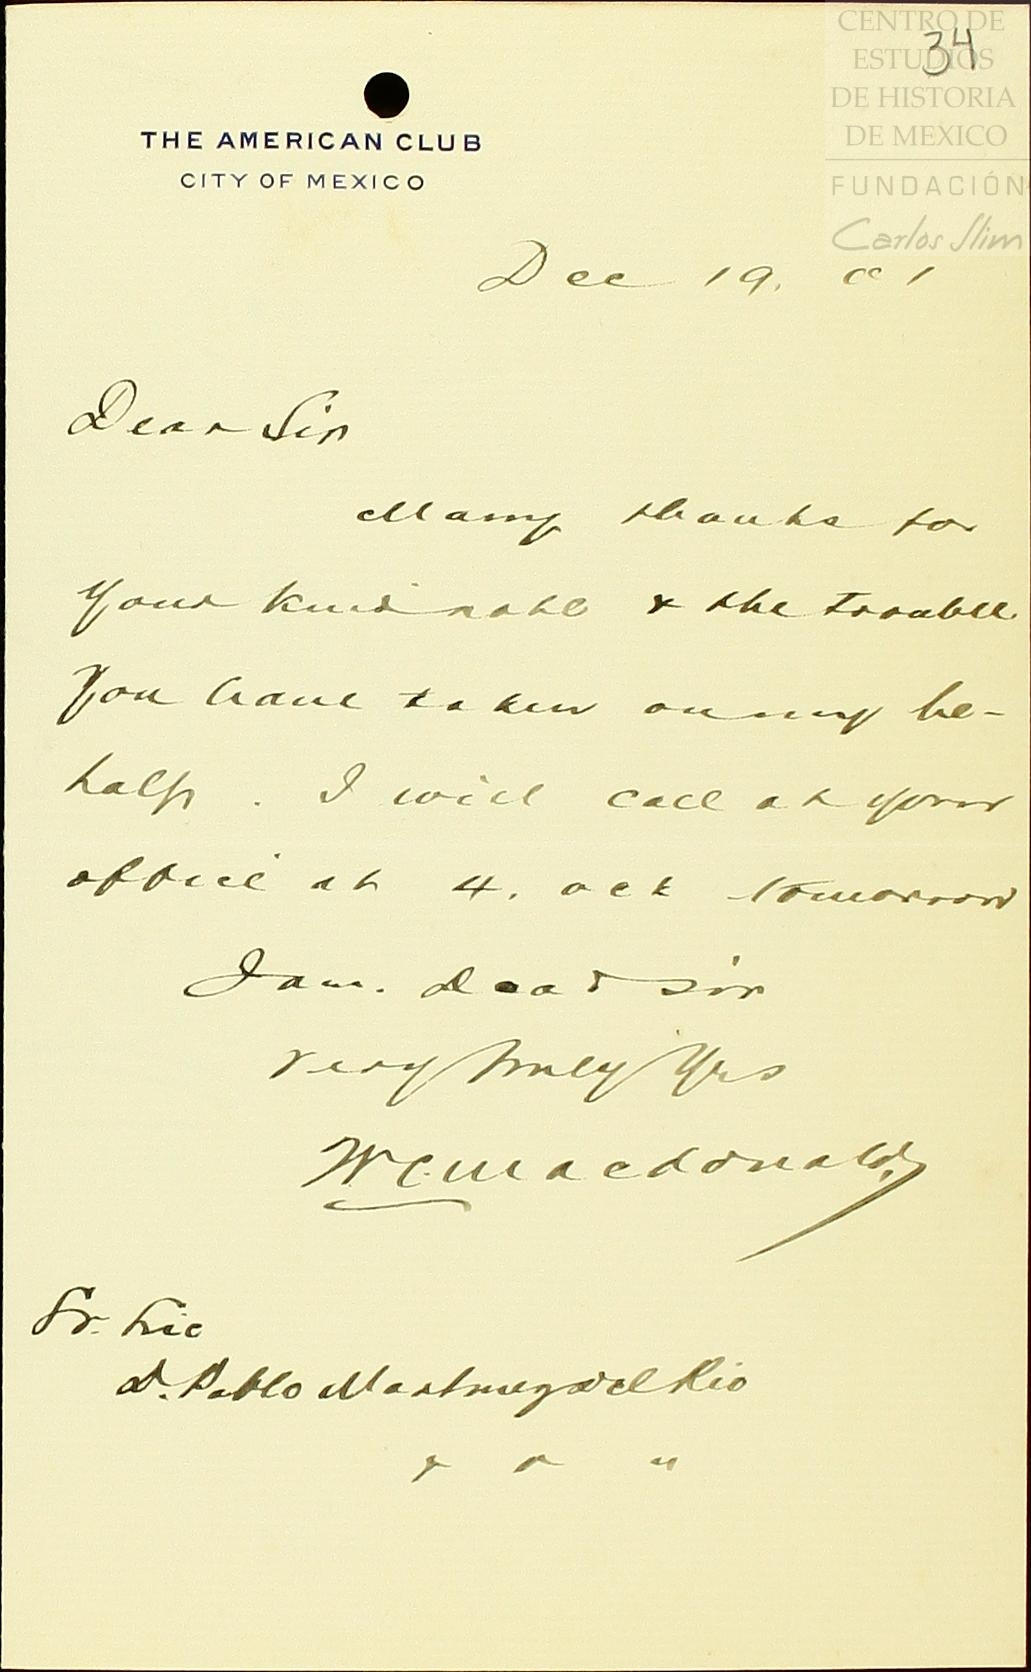 34
CENTRO DE
ESTUDIOS
DE HISTORIA
DE MEXICO
FUNDACIÓN
Carlos Slim
THE AMERICAN CLUB
CITY OF MEXICO
Dec 19.
Dear Sir
Many thanks for
your kind note & the trouble
you have taken on my be-
half. I will call at your
office at 4. ock tomorrow
I am. Dear Sir
very truly yrs
W C. Macdonald
Sr. Lic
D. Pablo Martinez del Rio